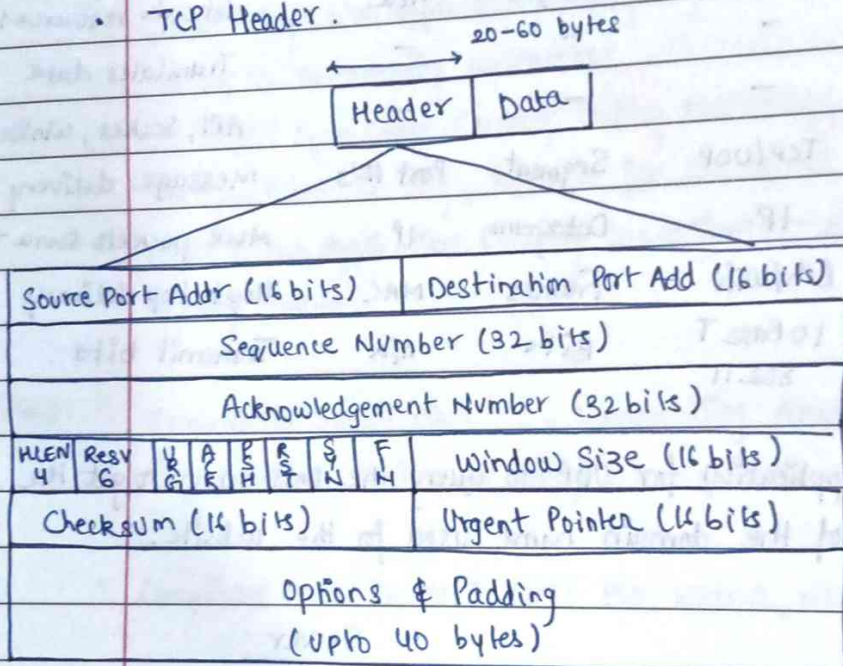 • TCP Header.
20-60 bytes
Header Data
Source Port Addr (16 bits) Destination Port Add (16 bits)
Sequence Number (32 bits)
Acknowledgement Number (32 bits)
HLEN 4 Resv 6 URG ACK PSH RST SYN FIN Window Size (16 bits)
Checksum (16 bits) Urgent Pointer (16 bits)
Options & Padding
(upto 40 bytes)